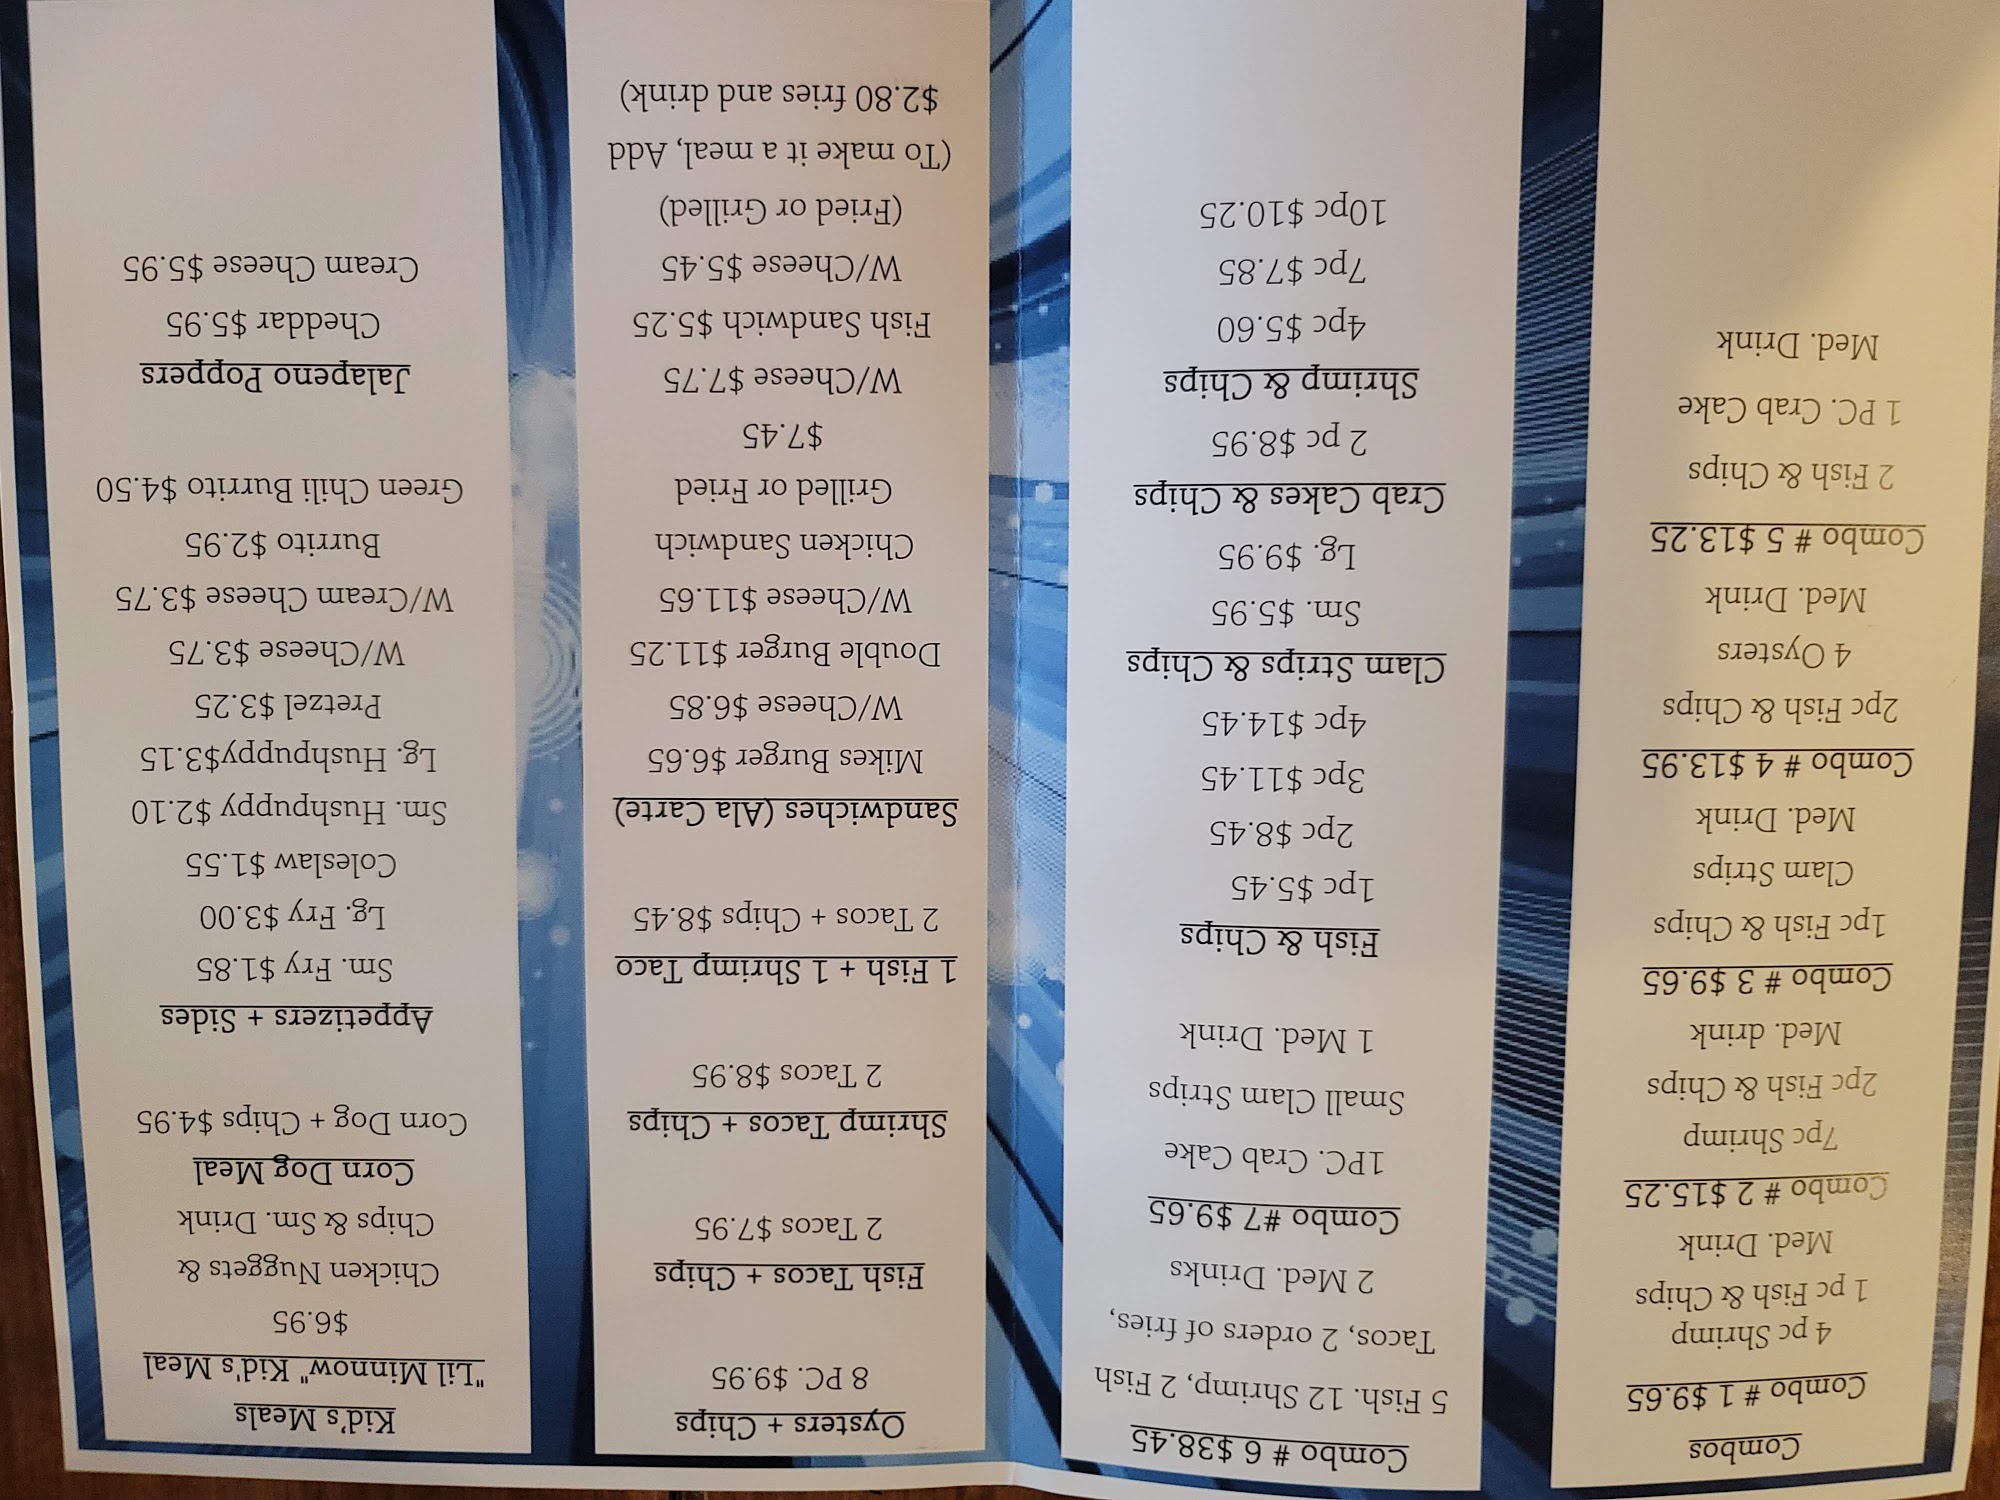 Combos
Combo # 1 $9.65
4 pc Shrimp
1 pc Fish & Chips
Med. Drink
Combo # 2 $15.25
7pc Shrimp
2pc Fish & Chips
Med. drink
Combo # 3 $9.65
1pc Fish & Chips
Clam Strips
Med. Drink
Combo # 4 $13.95
2pc Fish & Chips
4 Oysters
Med. Drink
Combo # 5 $13.25
2 Fish & Chips
1 PC. Crab Cake
Med. Drink
Combo # 6 $38.45
5 Fish. 12 Shrimp, 2 Fish
Tacos, 2 orders of fries,
2 Med. Drinks
Combo #7 $9.65
1PC. Crab Cake
Small Clam Strips
1 Med. Drink
Fish & Chips
1pc $5.45
2pc $8.45
3pc $11.45
4pc $14.45
Clam Strips & Chips
Sm. $5.95
Lg. $9.95
Crab Cakes & Chips
2 pc $8.95
Shrimp & Chips
4pc $5.60
7pc $7.85
10pc $10.25
Oysters + Chips
8 PC. $9.95
Fish Tacos + Chips
2 Tacos $7.95
Shrimp Tacos + Chips
2 Tacos $8.95
1 Fish + 1 Shrimp Taco
2 Tacos + Chips $8.45
Sandwiches (Ala Carte)
Mikes Burger $6.65
W/Cheese $6.85
Double Burger $11.25
W/Cheese $11.65
Chicken Sandwich
Grilled or Fried
$7.45
W/Cheese $7.75
Fish Sandwich $5.25
W/Cheese $5.45
(Fried or Grilled)
(To make it a meal, Add
$2.80 fries and drink)
Kid's Meals
"Lil Minnow" Kid's Meal
$6.95
Chicken Nuggets &
Chips & Sm. Drink
Corn Dog Meal
Corn Dog + Chips $4.95
Appetizers + Sides
Sm. Fry $1.85
Lg. Fry $3.00
Coleslaw $1.55
Sm. Hushpuppy $2.10
Lg. Hushpuppy$3.15
Pretzel $3.25
W/Cheese $3.75
W/Cream Cheese $3.75
Burrito $2.95
Green Chili Burrito $4.50
Jalapeno Poppers
Cheddar $5.95
Cream Cheese $5.95